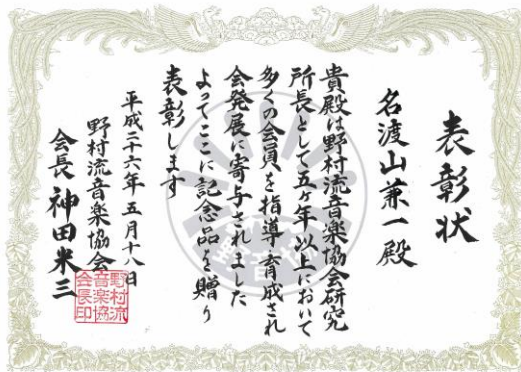 表彰状
名渡山兼一殿
貴殿は野村流音楽協会研究
所長として五ヶ年以上において
多くの会員を指導・育成され
会発展に寄与されました
よってここに記念品を贈り
表彰します
平成二十六年 五月十八日
野村流音楽協会
会長 神田米三
野村流
音楽協
会長印
野音協